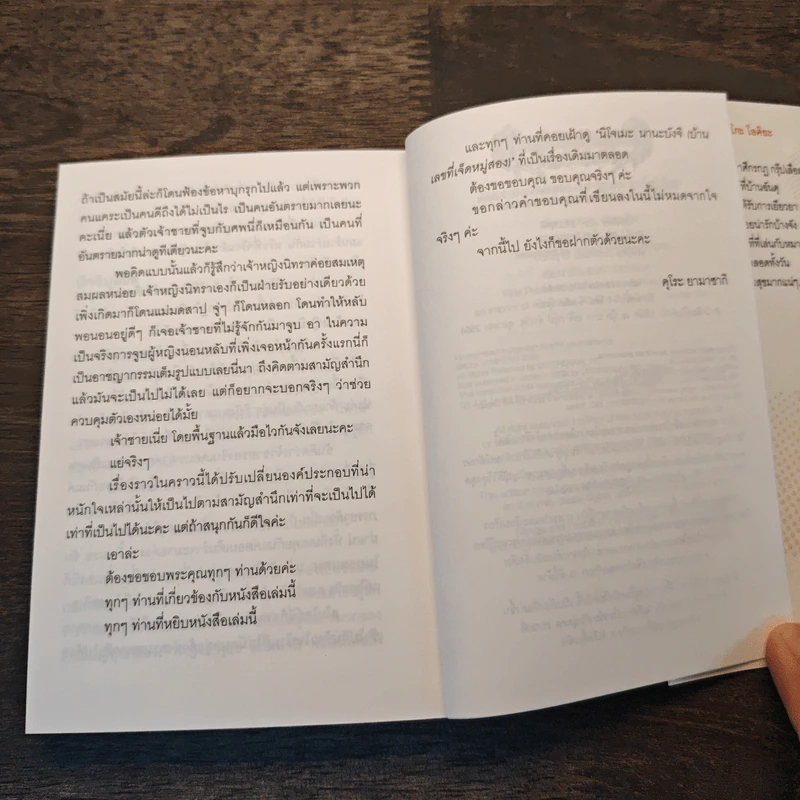 ถ้าเป็นสมัยนี้ล่ะก็โดนฟ้องข้อหาบุกรุกไปแล้ว แต่เพราะพวก
คนแคระเป็นคนดีถึงได้ไม่เป็นไร เป็นคนอันตรายมากเลยนะ
คะเนี่ย แล้วตัวเจ้าชายที่จูบกับศพนี่ก็เหมือนกัน เป็นคนที่
อันตรายมากน่าดูทีเดียวนะคะ
พอคิดแบบนั้นแล้วก็รู้สึกว่าเจ้าหญิงนิทราค่อยสมเหตุ
สมผลหน่อย เจ้าหญิงนิทราเองก็เป็นฝ่ายรับอย่างเดียวด้วย
เพิ่งเกิดมาก็โดนแม่มดสาป จู่ๆ ก็โดนหลอก โดนทำให้หลับ
พอนอนอยู่ดีๆ ก็เจอเจ้าชายที่ไม่รู้จักกันมาจูบ อา ในความ
เป็นจริงการจูบผู้หญิงนอนหลับที่เพิ่งเจอหน้ากันครั้งแรกนี่ก็
เป็นอาชญากรรมเต็มรูปแบบเลยนี่นา ถึงคิดตามสามัญสำนึก
แล้วมันจะเป็นไปไม่ได้เลย แต่ก็อยากจะบอกจริงๆ ว่าช่วย
ควบคุมตัวเองหน่อยได้มั้ย
เจ้าชายเนี่ย โดยพื้นฐานแล้วมือไวกันจังเลยนะคะ
แย่จริงๆ
เรื่องราวในคราวนี้ได้ปรับเปลี่ยนองค์ประกอบที่น่า
หนักใจเหล่านั้นให้เป็นไปตามสามัญสำนึกเท่าที่จะเป็นไปได้
เท่าที่เป็นไปได้นะคะ แต่ถ้าสนุกกันก็ดีใจค่ะ
เอาล่ะ
ต้องขอขอบพระคุณทุกๆ ท่านด้วยค่ะ
ทุกๆ ท่านที่เกี่ยวข้องกับหนังสือเล่มนี้
ทุกๆ ท่านที่หยิบหนังสือเล่มนี้
และทุกๆ ท่านที่คอยเฝ้าดู 'นิโจเมะ นานะบังจิ (บ้าน
เลขที่เจ็ดหมู่สอง)' ที่เป็นเรื่องเดิมมาตลอด
ต้องขอขอบคุณ ขอบคุณจริงๆ ค่ะ
ขอกล่าวคำขอบคุณที่เขียนลงในนี้ไม่หมดจากใจ
จริงๆ ค่ะ
จากนี้ไป ยังไงก็ขอฝากตัวด้วยนะคะ
คุโระ ยามาซากิ
โอคิซะ
ที่บ้านอันดุ
ได้รับการเยียวยา
ยน่ารักบ้างจัง
ที่ที่เล่นกับหมา
ลอดทั้งวัน